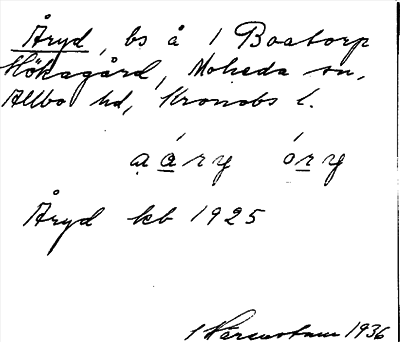 Åryd, bs å 1 Boatorp
Hökagård, Moheda sn,
Allbo hd, Kronobs l.
ạ á r y ó r y
Åryd kb 1925
1936